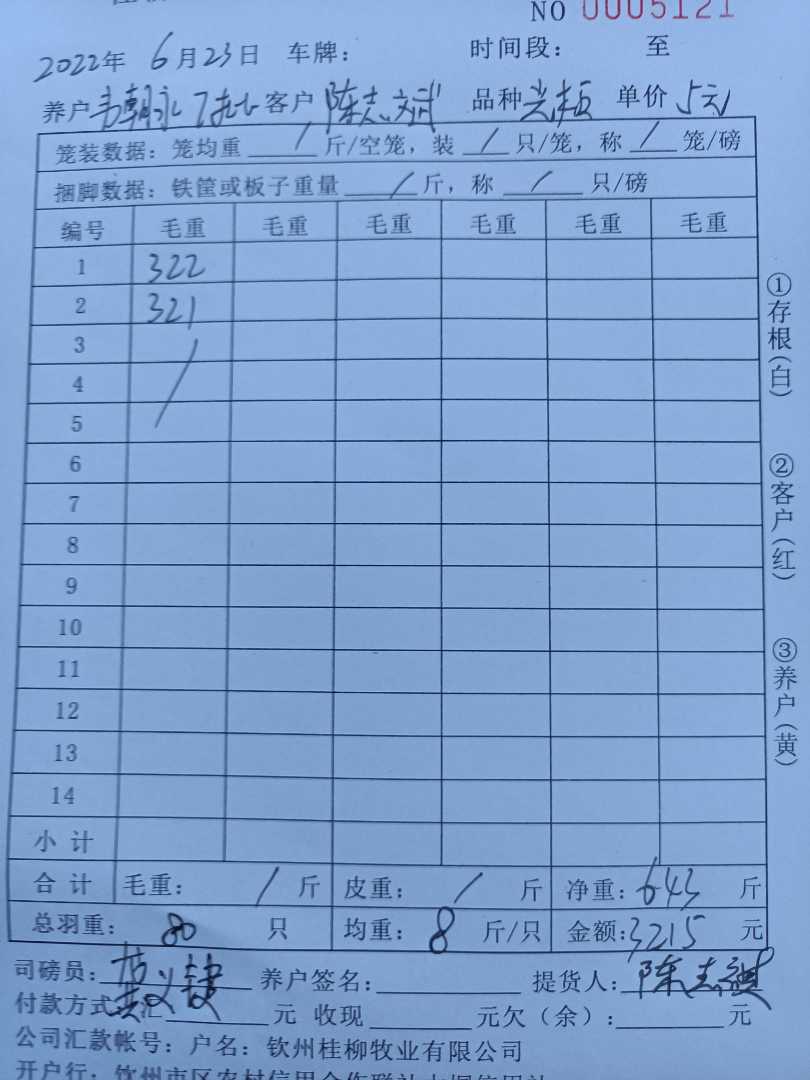 NO 0005121
2022年 6月23日 车牌: 时间段: 至
养户 韦朝永 客户 陈志斌 品种 单价 5元
笼装数据: 笼均重 / 斤/空笼, 装 / 只/笼, 称 / 笼/磅
捆脚数据: 铁筐或板子重量 / 斤, 称 / 只/磅
编号 毛重 毛重 毛重 毛重 毛重 毛重
1 322
2 321
3 /
4
5
6
7
8
9
10
11
12
13
14
小计
合计 毛重: / 斤 皮重: / 斤 净重: 643 斤
总羽重: 80 只 均重: 8 斤/只 金额: 3215 元
司磅员: 养户签名: 提货人: 陈志
付款方式: 汇 元 收现 元欠(余): 元
公司汇款帐号: 户名: 钦州桂柳牧业有限公司
开户行: 钦州市区农村信用合作联社
①存根(白)
②客户(红)
③养户(黄)